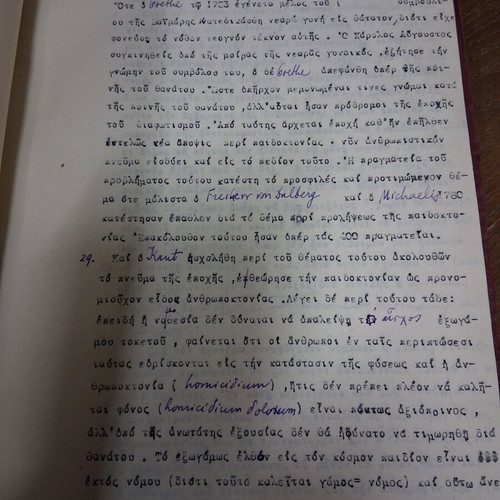 Ὅτε ὁ Goethe τῷ 1783 ἐγένετο μέλος τοῦ (
ου τῆς Βαϊμάρης κατεδικάσθη νεαρά γυνή εἰς θάνατον, διότι εἶχε
φονεύσει τό νόθον νεογνόν τέκνον αὐτῆς. Ὁ Κάρολος Αὔγουστος
συγκινηθείς ὑπό τῆς μοίρας τῆς νεαρᾶς γυναικός, ἐζήτησε τήν
γνώμην τοῦ συμβούλου του, ὁ δέ Goethe ἀπεφάνθη ὑπέρ τῆς ποι-
νῆς τοῦ θανάτου. Ὥστε ὑπῆρχον μεμονωμέναι τινες γνῶμαι κατά
τῆς ποινῆς τοῦ θανάτου, ἀλλ' αὗται ἦσαν πρόδρομοι τῆς ἐποχῆς
τοῦ διαφωτισμοῦ. Ἀπό ταύτης ἄρχεται ἐποχή καθ' ἥν ἐπῆλθεν
ἐντελῶς νέα ἄποψις περί παιδοκτονίας. νῦν ἀνθρωπιστικόν
πνεῦμα εἰσδύει καί εἰς τό πεδίον τοῦτο. Ἡ πραγματεία τοῦ
προβλήματος τούτου κατέστη τό προσφιλές καί προτιμώμενον θέ-
μα ὅτε μάλιστα ὁ Freiherr von Dalberg καί ὁ Michaelis 1780
κατέστησαν ἔπαθλον διά τό θέμα περί προλήψεως τῆς παιδοκτο-
νίας Ἐπακόλουθον τούτου ἦσαν ὑπέρ τάς 400 πραγματεῖαι.
29. Καί ὁ Kant ἠσχολήθη περί τοῦ θέματος τούτου ἀκολουθῶν
τό πνεῦμα τῆς ἐποχῆς, ἐθεώρησε τήν παιδοκτονίαν ὡς προνο-
μιοῦχον εἶδος ἀνθρωποκτονίας. Λέγει δέ περί τούτου τάδε:
ἐπειδή ἡ νομοθεσία δέν δύναται νά ἀπαλείψῃ τό αἶσχος ἐξωγά-
μου τοκετοῦ, φαίνεται ὅτι οἱ ἄνθρωποι ἐν ταῖς περιπτώσεσι
ταύταις εὑρίσκονται εἰς τήν κατάστασιν τῆς φύσεως καί ἡ ἀν-
θρωποκτονία (homicidium), ἥτις δέν πρέπει πλέον νά καλῆ-
ται φόνος (homicidium dolosum) εἶναι πάντως ἀξιόποινος,
ἀλλ' ὑπό τῆς ἀνωτάτης ἐξουσίας δέν θά ἠδύνατο νά τιμωρηθῇ διά
θανάτου. Τό ἐξωγάμως ἐλθόν εἰς τόν κόσμον παιδίον εἶναι
ἐκτός νόμου (διότι τοῦτο καλεῖται γάμος= νόμος) καί οὕτω ἄνε